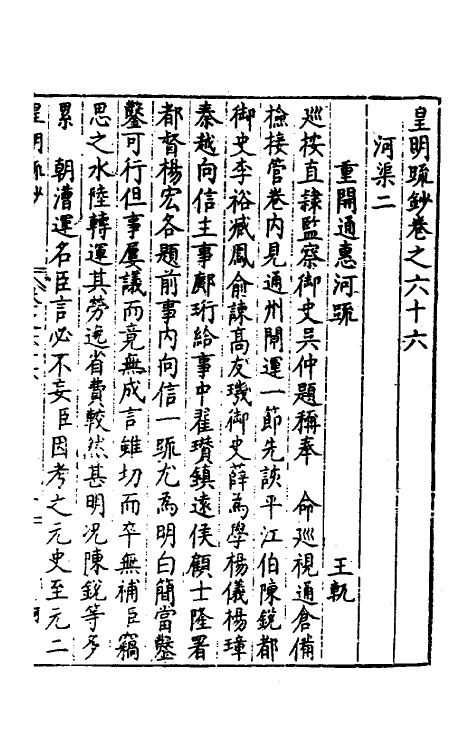 皇明疏鈔卷之六十六
河渠二
重開通惠河疏 王軏
巡按直隸監察御史吳仲題稱奉 命巡視通倉備
檢接管卷內見通州閘運一節先該平江伯陳銳都
御史李裕臧鳳俞諫高友璣御史薛為學楊儀楊璋
秦越向信主事鄺珩給事中翟瓚鎮遠侯顧士隆署
都督楊宏各題前事內向信一疏尤為明白簡當鑿
鑿可行但事屢議而竟無成言雖切而卒無補臣竊
思之水陸轉運其勞逸省費較然甚明况陳銳等多
累 朝漕運名臣言必不妄臣因考之元史至元二
皇明疏鈔